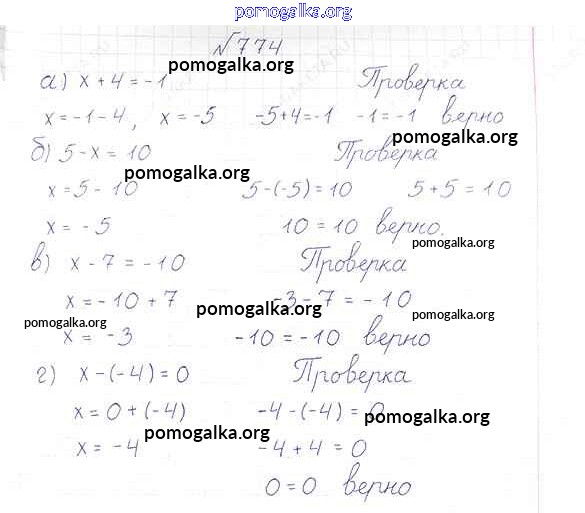 pomogalka.org
№774
а) x + 4 = -1 pomogalka.org Проверка
x = -1 - 4, x = -5 -5+4=-1 -1 = -1 верно
pomogalka.org
б) 5 - x = 10 pomogalka.org Проверка
x = 5 - 10 pomogalka.org 5-(-5) = 10 5 + 5 = 10
x = - 5 10 = 10 верно.
pomogalka.org
в) x - 7 = -10 Проверка
x = - 10 + 7 pomogalka.org -3 - 7 = - 10
pomogalka.org pomogalka.org
x = -3 -10 = -10 верно
г) x - (-4) = 0 Проверка
x = 0 + (-4) -4 - (-4) = 0 pomogalka.org
x = -4 pomogalka.org -4 + 4 = 0
0 = 0 верно